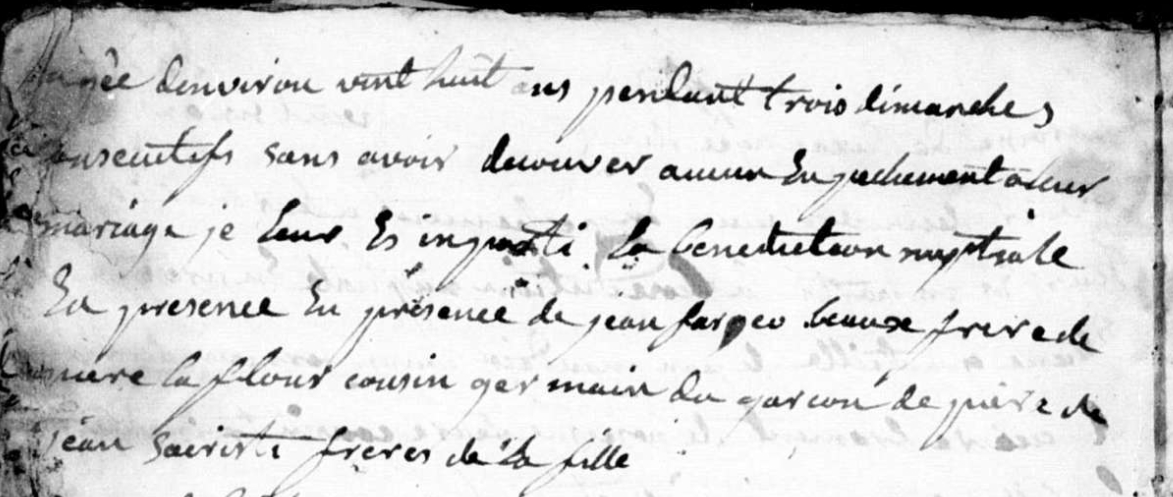 agée denviron vint huit ans pendant trois dimanches
consecutifs sans avoir decouver aucun Enpechement a leur
mariage je leur Es inparti la benediction nuptiale
En presence En présence de jean farges beaux frere de
piere la flour cousin germain du garcon de piere de
jean sacristi freres de la fille